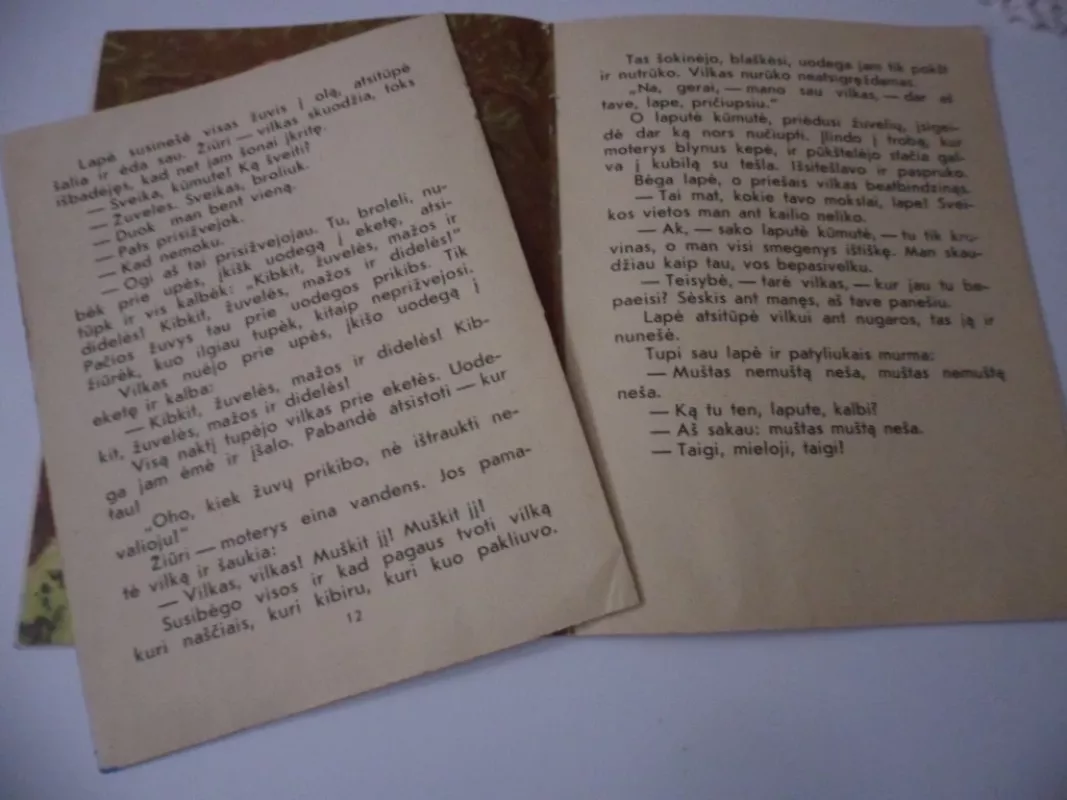 Lapė susinešė visas žuvis į olą, atsitūpė
šalia ir ėda sau. Žiūri — vilkas skuodžia, toks
išbadėjęs, kad net jam šonai įkritę.
— Sveika, kūmute! Ką šveiti?
— Žuveles. Sveikas, broliuk.
— Duok man bent vieną.
— Pats prisižvejok.
— Kad nemoku.
— Ogi aš tai prisižvejojau. Tu, broleli, nu-
bėk prie upės, įkišk uodegą į eketę, atsi-
tūpk ir vis kalbėk: „Kibkit, žuvelės, mažos ir
didelės! Kibkit, žuvelės, mažos ir didelės!"
Pačios žuvys tau prie uodegos prikibs. Tik
žiūrėk, kuo ilgiau tupėk, kitaip neprižvejosi.
Vilkas nuėjo prie upės, įkišo uodegą į
eketę ir kalba:
— Kibkit, žuvelės, mažos ir didelės! Kib-
kit, žuvelės, mažos ir didelės!
Visą naktį tupėjo vilkas prie eketės. Uode-
ga jam ėmė ir įšalo. Pabandė atsistoti — kur
tau!
„Oho, kiek žuvų prikibo, nė ištraukti ne-
valioju!"
Žiūri — moterys eina vandens. Jos pama-
tė vilką ir šaukia:
— Vilkas, vilkas! Muškit jį! Muškit jį!
Susibėgo visos ir kad pagaus tvoti vilką
kuri naščiais, kuri kibiru, kuri kuo pakliuvo.
12
Tas šokinėjo, blaškėsi, uodega jam tik pokšt
ir nutrūko. Vilkas nurūko neatsigręždamas.
„Na, gerai, — mano sau vilkas, — dar aš
tave, lape, pričiupsiu."
O laputė kūmutė, priėdusi žuvelių, įsigei-
dė dar ką nors nučiupti. Įlindo į trobą, kur
moterys blynus kepė, ir pūkštelėjo stačia gal-
va į kubilą su tešla. Išsitešlavo ir paspruko.
Bėga lapė, o priešais vilkas beatbindzinąs.
— Tai mat, kokie tavo mokslai, lape! Svei-
kos vietos man ant kailio neliko.
— Ak, — sako laputė kūmutė, — tu tik kru-
vinas, o man visi smegenys ištiškę. Man skau-
džiau kaip tau, vos bepasivelku.
— Teisybė, — tarė vilkas, — kur jau tu be-
paeisi? Sėskis ant manęs, aš tave panešiu.
Lapė atsitūpė vilkui ant nugaros, tas ją ir
nunešė.
Tupi sau lapė ir patyliukais murma:
— Muštas nemuštą neša, muštas nemuštą
neša.
— Ką tu ten, lapute, kalbi?
— Aš sakau: muštas muštą neša.
— Taigi, mieloji, taigi!